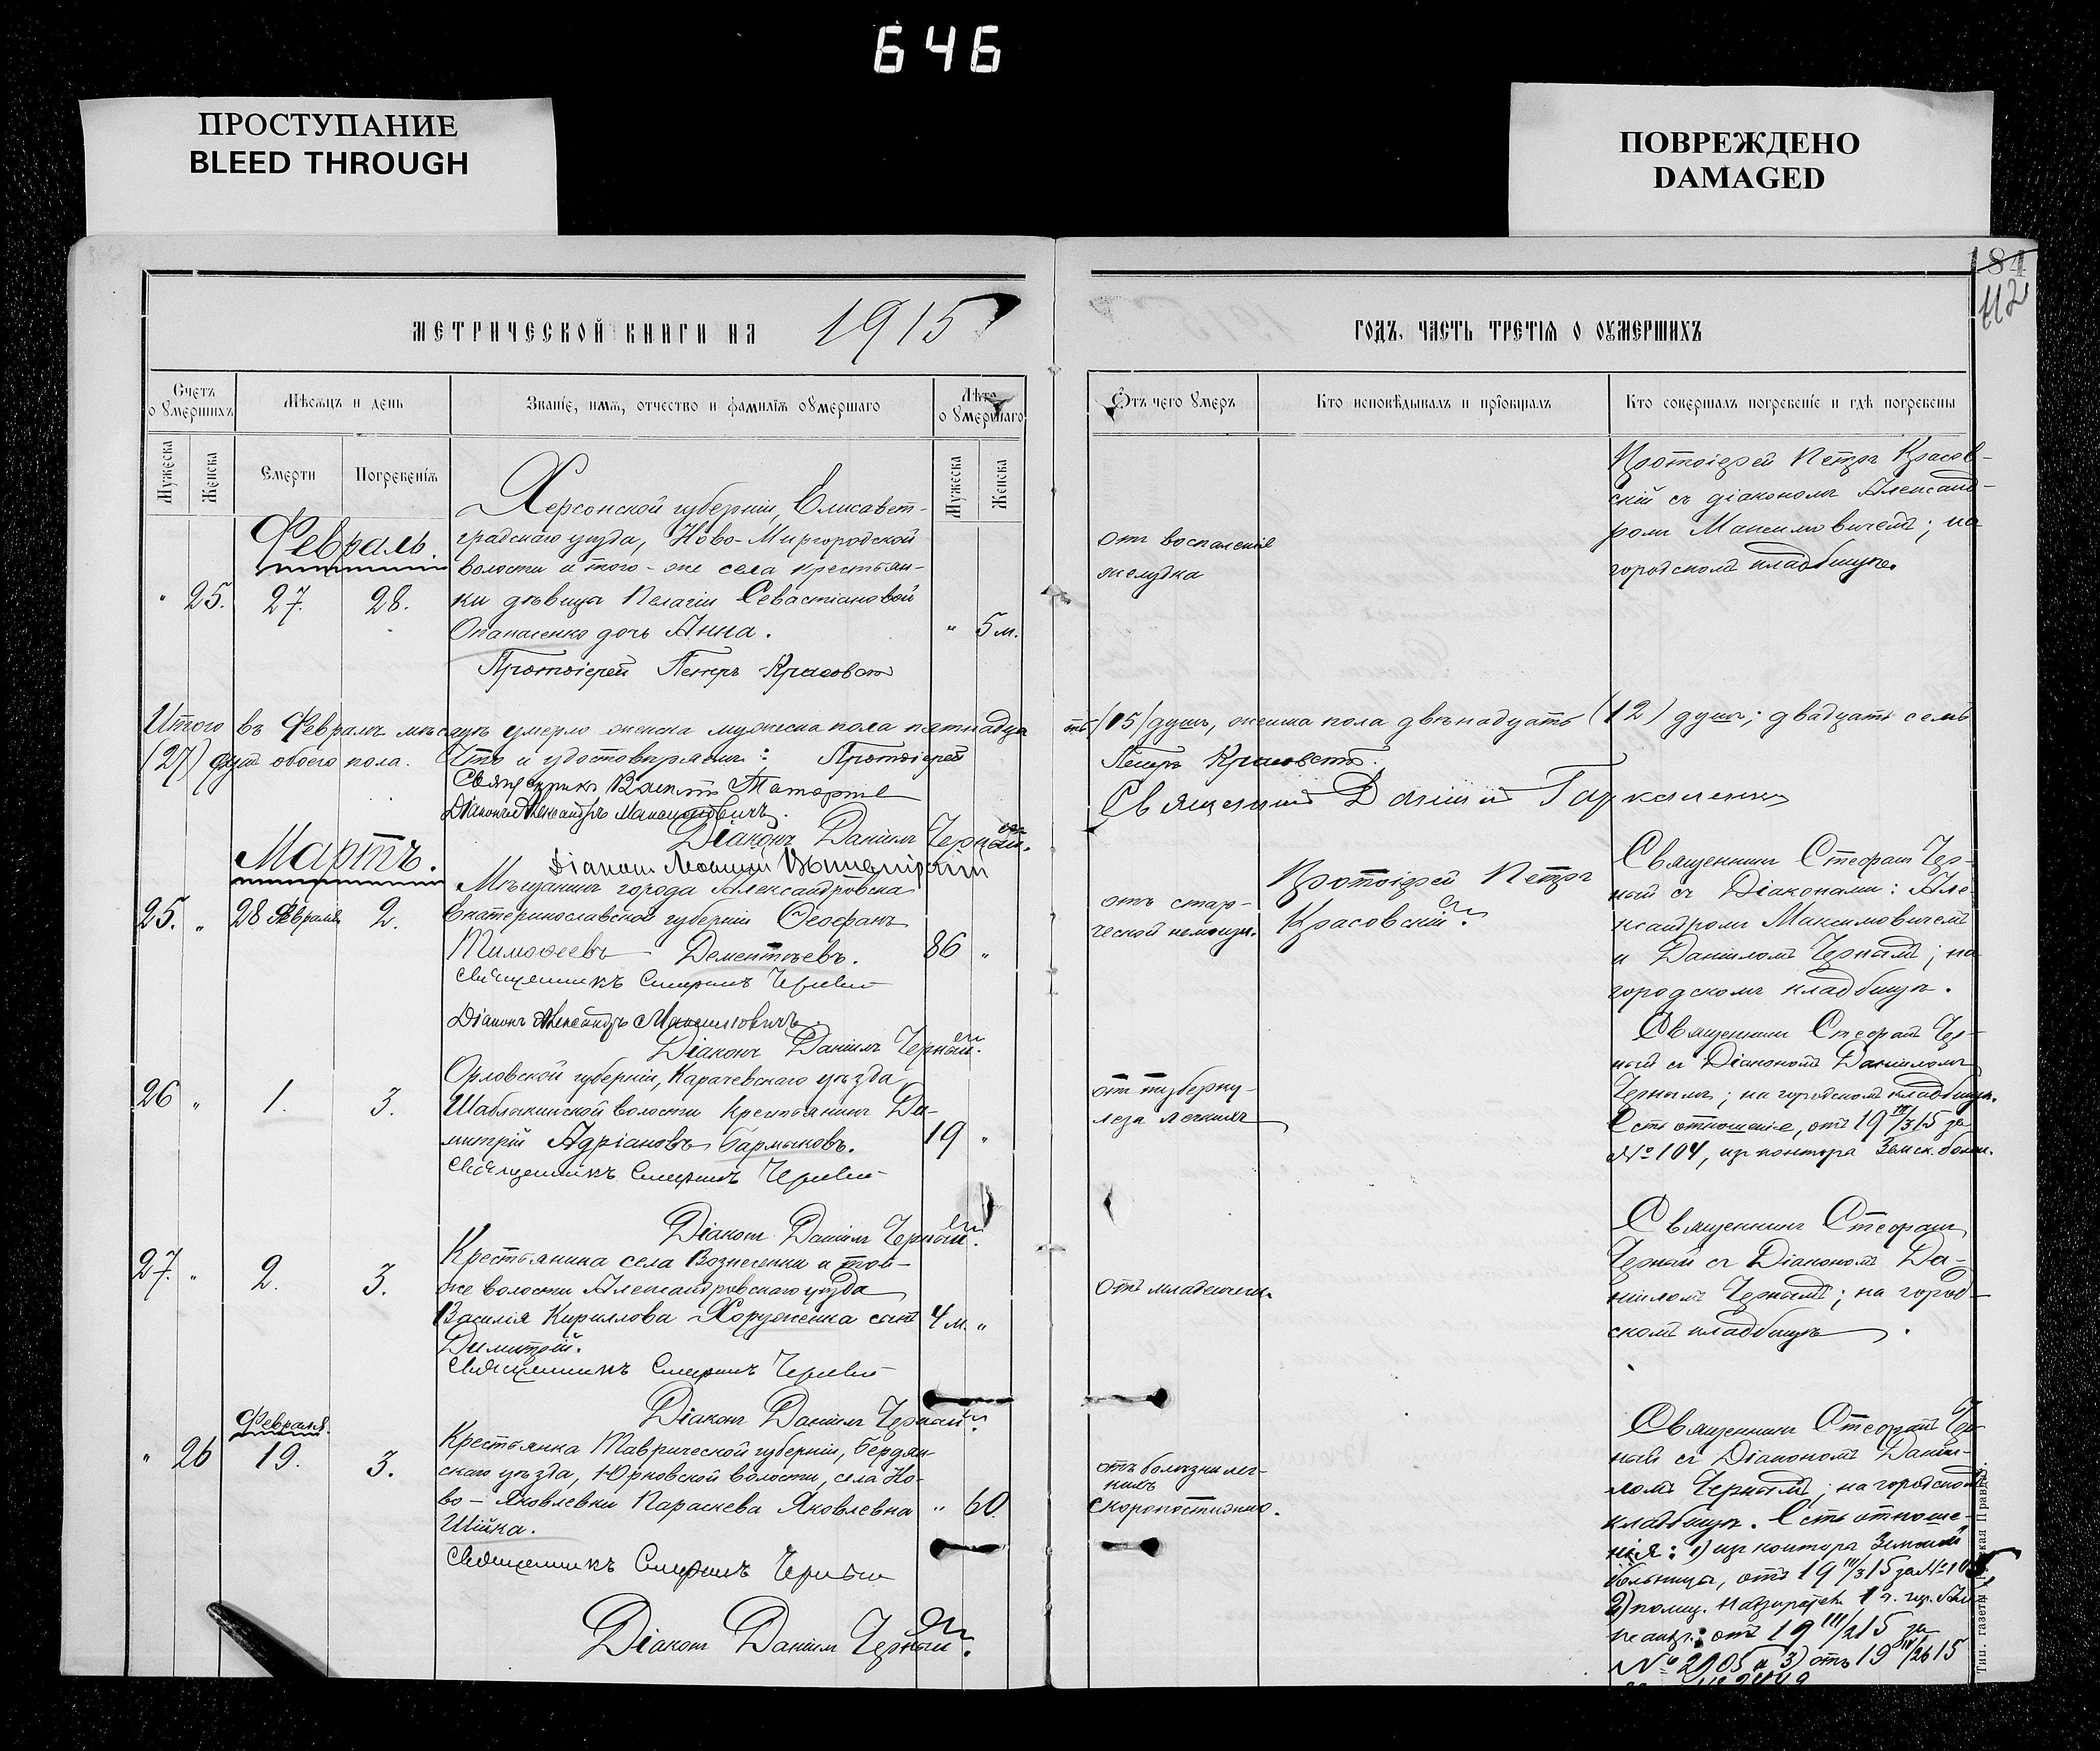 646
ПРОСТУПАНИЕ
BLEED THROUGH
ПОВРЕЖДЕНО
DAMAGED
184
112
МЕТРИЧЕСКОЙ КНИГИ НА 1915
ГОДЪ, ЧАСТЬ ТРЕТІЯ О ОУМЕРШИХЪ
Счетъ о умершихъ
Мѣсяцъ и день
Званіе, имя, отчество и фамилія оумершаго
Лѣта о умершаго
Мужеска
Женска
Смерти
Погребенія
Мужеска
Женска
Отъ чего умеръ
Кто исповѣдывалъ и пріобщалъ
Кто совершалъ погребеніе и гдѣ погребены
Февраль.
" 25. 27. 28.
Херсонской губерніи, Елисавет-
градскаго уѣзда, Ново-Миргородской
волости и того-же села крестьян-
ки дѣвицы Пелагіи Севастіановой
Опанасенко дочь Анна.
" 5 м.
Протоіерей Петръ Красовскій
отъ воспаленіе
желудка
Протоіерей Петръ Красов-
скій съ діакономъ Александ-
ромъ Максимовичемъ; на
городскомъ кладбищѣ.
Итого въ Февралѣ мѣсяцѣ умерло женска мужеска пола пятнадца
ть (15) душъ, женска пола двѣнадцать (12) душъ; двадцать семь
(27) душъ обоего пола. Что и удостовѣряемъ: Протоіерей
Петръ Красовскій.
Діаконъ Александръ Максимовичъ.
Діаконъ Даніилъ Черный.
Мартъ.
25. " 28 Февраля 2.
Мѣщанинъ города Александровска
Екатеринославской губерніи Ѳеофанъ
Тимоѳеевъ Дементьевъ.
86 "
Священникъ Стефанъ Черный
Діаконъ Александръ Максимовичъ.
Діаконъ Даніилъ Черный.
отъ стар-
ческой немощи.
Протоіерей Петръ
Красовскій.
Священникъ Стефанъ Чер-
ный съ Діаконами: Але-
ксандромъ Максимовичемъ
и Даніиломъ Чернымъ; на
городскомъ кладбищѣ.
26 " 1. 3.
Орловской губерніи, Карачевскаго уѣзда
Шаблыкинской волости крестьянинъ Ди-
митрій Адріановъ Бармыковъ.
19 "
Священникъ Стефанъ Черный
Діаконъ Даніилъ Черный.
отъ туберку-
леза легкихъ
Священникъ Стефанъ Чер-
ный съ Діакономъ Даніиломъ
Чернымъ; на городскомъ кладбищѣ.
Есть отношеніе, отъ 19 III/3 15 за
№ 104, изъ контора Земск. больн.
27. " 2. 3.
Крестьянина села Вознесенки и той-
же волости Александровскаго уѣзда
Василія Кириллова Хоруженка сынъ
Димитрій.
4 м. "
Священникъ Стефанъ Черный
Діаконъ Даніилъ Черный.
Отъ младенческ.
Священникъ Стефанъ
Черный съ Діакономъ Да-
ніиломъ Чернымъ; на город-
скомъ кладбищѣ.
Февраля.
" 26 19. 3.
Крестьянка Таврической губерніи, Бердян-
скаго уѣзда, Юрковской волости, села Но-
во-Яковлевки Параскева Яковлевна
Шійка.
" 60.
Священникъ Стефанъ Черный
Діаконъ Даніилъ Черный.
отъ болѣзни лег-
кихъ
скоропостижно.
Священникъ Стефанъ Чер-
ный съ Діакономъ Даніи-
ломъ Чернымъ; на городскомъ
кладбищѣ. Есть отноше-
нія: 1) изъ контора Земской
больницы, отъ 19 III/3 15 за №
2) полиц. надзирателя 1 ч.
отъ 19 III/2 15 за
№ 2905 и 3) отъ 19 /26 15
Тип. газеты